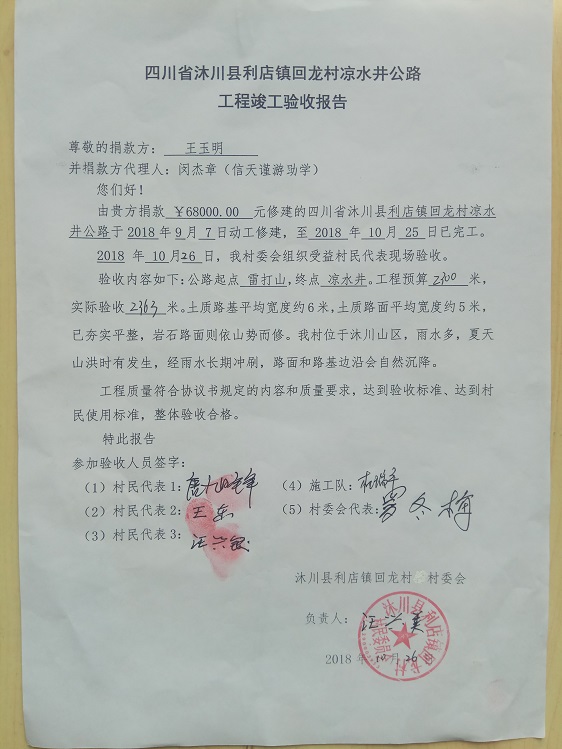 四川省沐川县利店镇回龙村凉水井公路
工程竣工验收报告
尊敬的捐款方： 王玉明
并捐款方代理人：闵杰章（信天谨游功学）
您们好！
由贵方捐款 ￥68000.00 元修建的四川省沐川县利店镇回龙村凉水
井公路于 2018 年 9 月 7 日动工修建，至 2018 年 10 月 25 日已完工。
2018 年 10 月 26 日，我村委会组织受益村民代表现场验收。
验收内容如下:公路起点 雷打山,终点 凉水井。工程预算 2300 米，
实际验收 2363 米。土质路基平均宽度约 6 米,土质路面平均宽度约 5 米，
已夯实平整，岩石路面则依山势而修。我村位于沐川山区，雨水多，夏天
山洪时有发生，经雨水长期冲刷，路面和路基边沿会自然沉降。
工程质量符合协议书规定的内容和质量要求，达到验收标准、达到村
民使用标准，整体验收合格。
特此报告
参加验收人员签字：
（1）村民代表 1：
（4）施工队：
（2）村民代表 2： 王东
（5）村委会代表： 罗冬梅
（3）村民代表 3： 汪兴银
沐川县利店镇回龙村 村委会
负责人： 汪兴美
沐川县利店镇回龙村村民委员会
2018 年 10 月 26